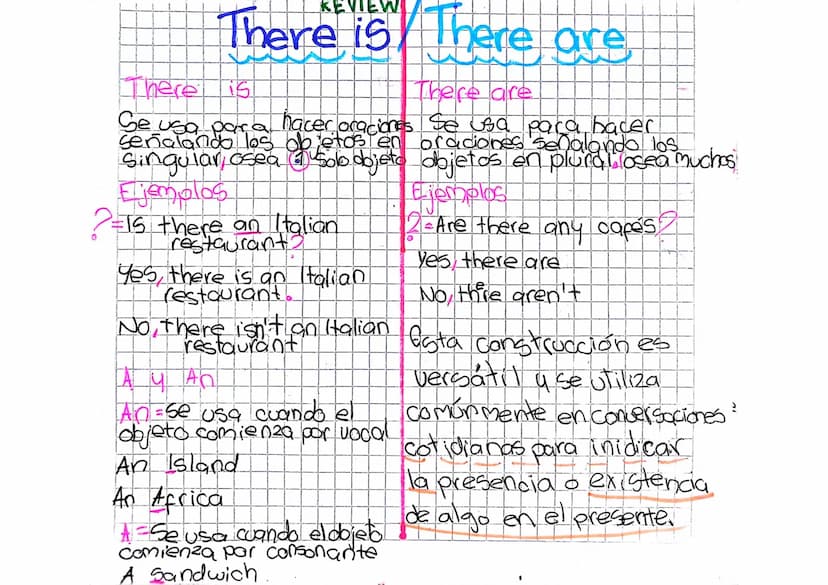 REVIEW
There is / There are
There is
Se usa para hacer oraciones
señalando los objetos en
singular, osea 1 solo objeto
Ejemplos
?=Is there an Italian
restaurant?
Yes, there is an Italian
restaurant.
No, there isn't an Italian
restaurant
A y An
An=se usa cuando el
objeto comienza por vocal
An Island
An Africa
A=Se usa cuando el objeto
comienza por consonante
A Sandwich.
There are
Se usa para hacer
oraciones señalando los
objetos en plural. (osea muchos)
Ejemplos
?=Are there any capés?
Yes, there are
No, there aren't
Esta construcción es
versátil y se utiliza
comúnmente en conversaciones
cotidianas para inidicar
la presencia o existencia
de algo en el presente.